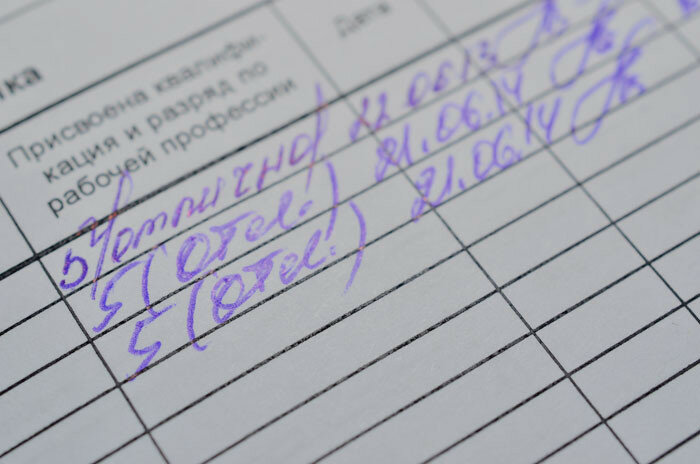 тка
Присвоена квалифи-
кация и разряд по
рабочей профессии
Дата
5 (отлично) 22.06.13
5 (отл.) 21.06.14
5 (отл.) 21.06.14